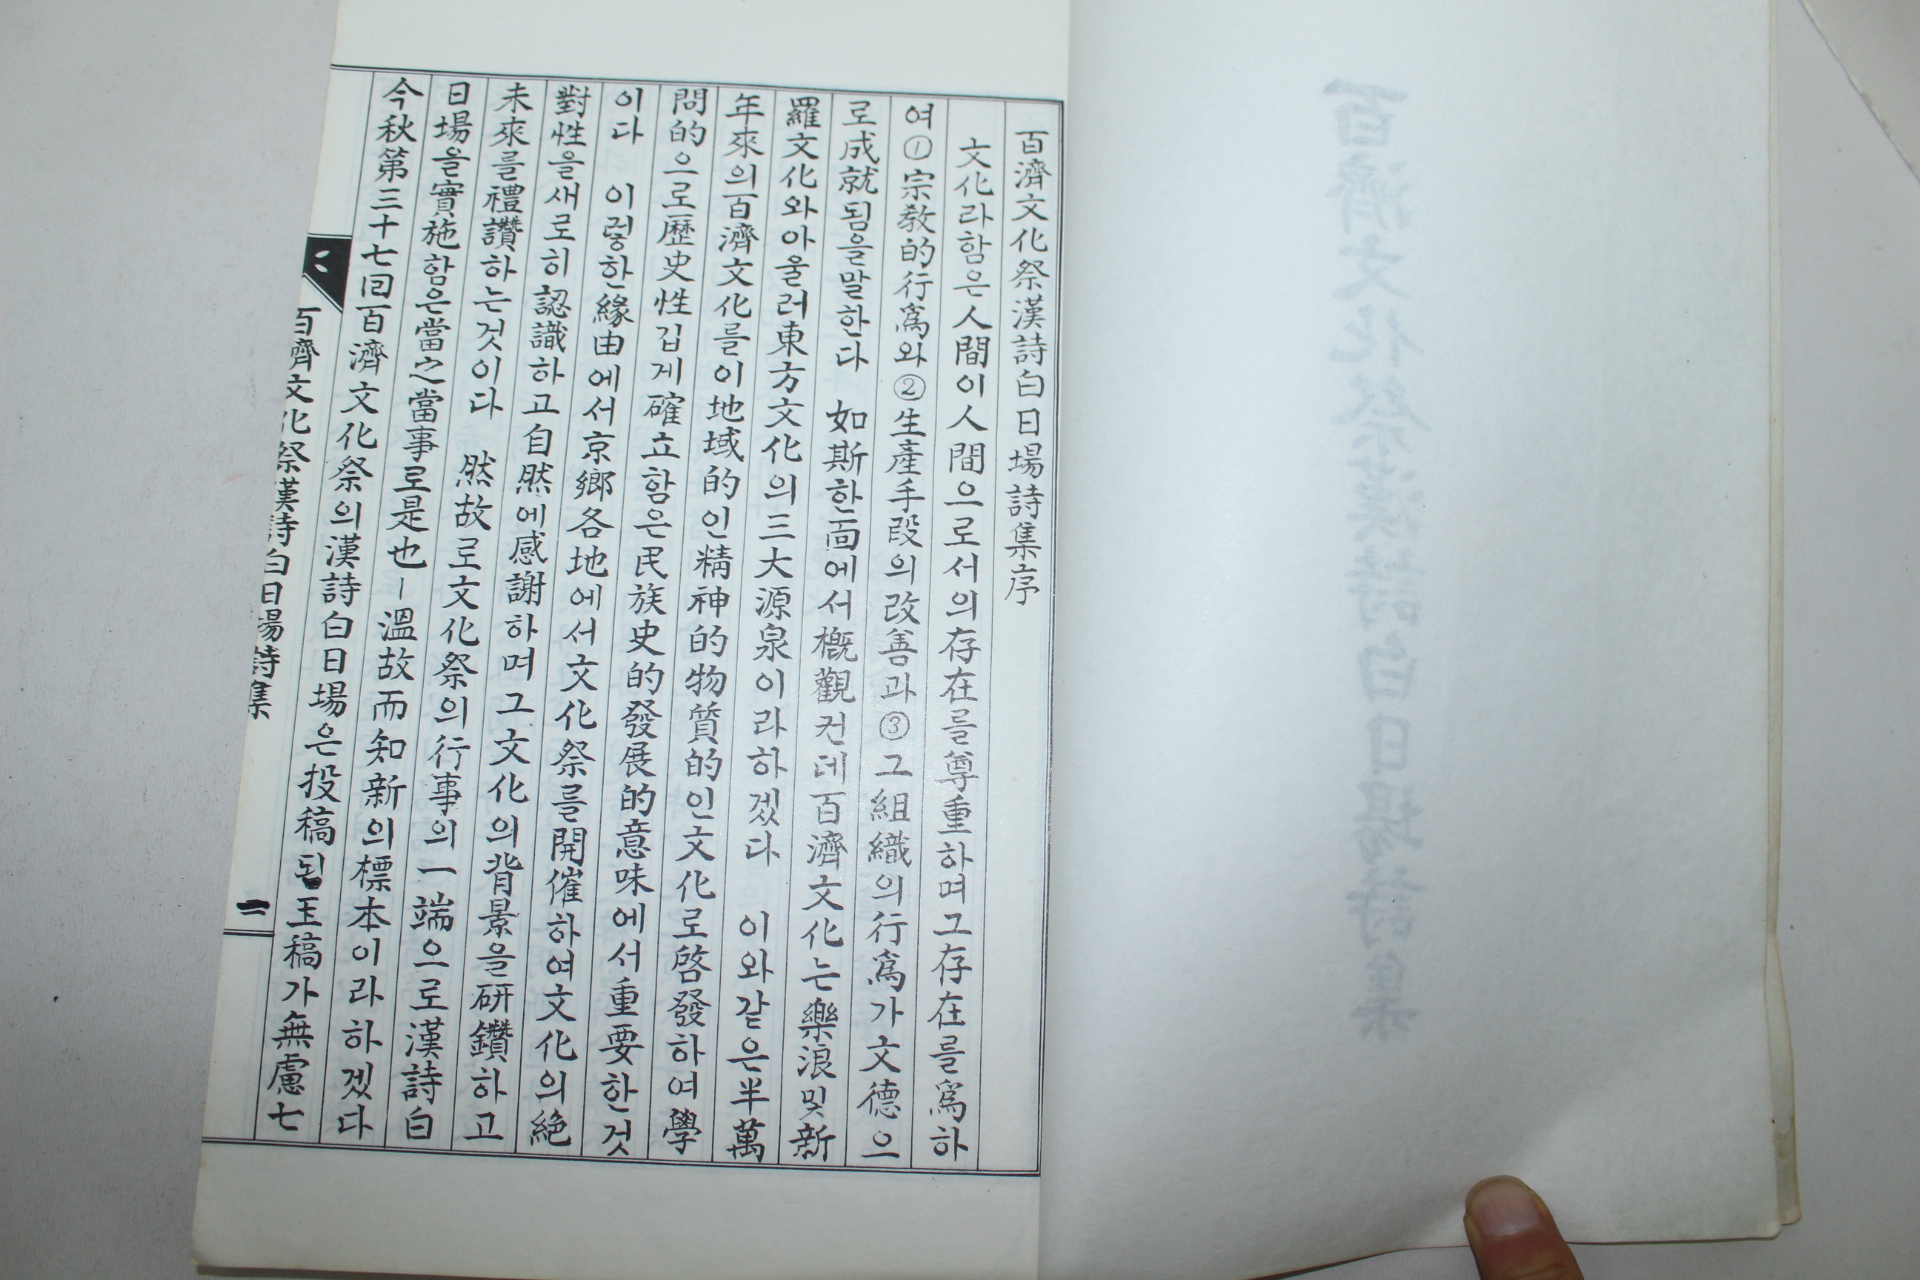 百濟文化祭漢詩白日場詩集
百濟文化祭漢詩白日場詩集序
文化라함은人間이人間으로서의存在를尊重하며그存在를爲하
여①宗敎的行爲와②生產手段의改善과③그組織의行爲가文德으
로成就됨을말한다 如斯한面에서槪觀컨데百濟文化는樂浪및新
羅文化와아울러東方文化의三大源泉이라하겠다 이와같은半萬
年來의百濟文化를이地域的인精神的物質的인文化로啓發하여學
問的으로歷史性깁게確立함은民族史的發展的意味에서重要한것
이다 이렇한緣由에서京鄉各地에서文化祭를開催하여文化의絶
對性을새로히認識하고自然에感謝하며그文化의背景을硏鑽하고
未來를禮讚하는것이다 然故로文化祭의行事의一端으로漢詩白
日場을實施함은當之當事로是也ㅣ溫故而知新의標本이라하겠다
今秋第三十七回百濟文化祭의漢詩白日場은投稿된玉稿가無慮七
百濟文化祭漢詩白日場詩集
二